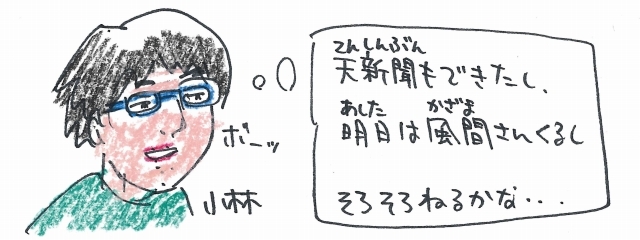 てんしんぶん
天新聞もできたし、
あした かざま
明日は風間さんくるし
そろそろねるかな・・・
ボーッ
小林